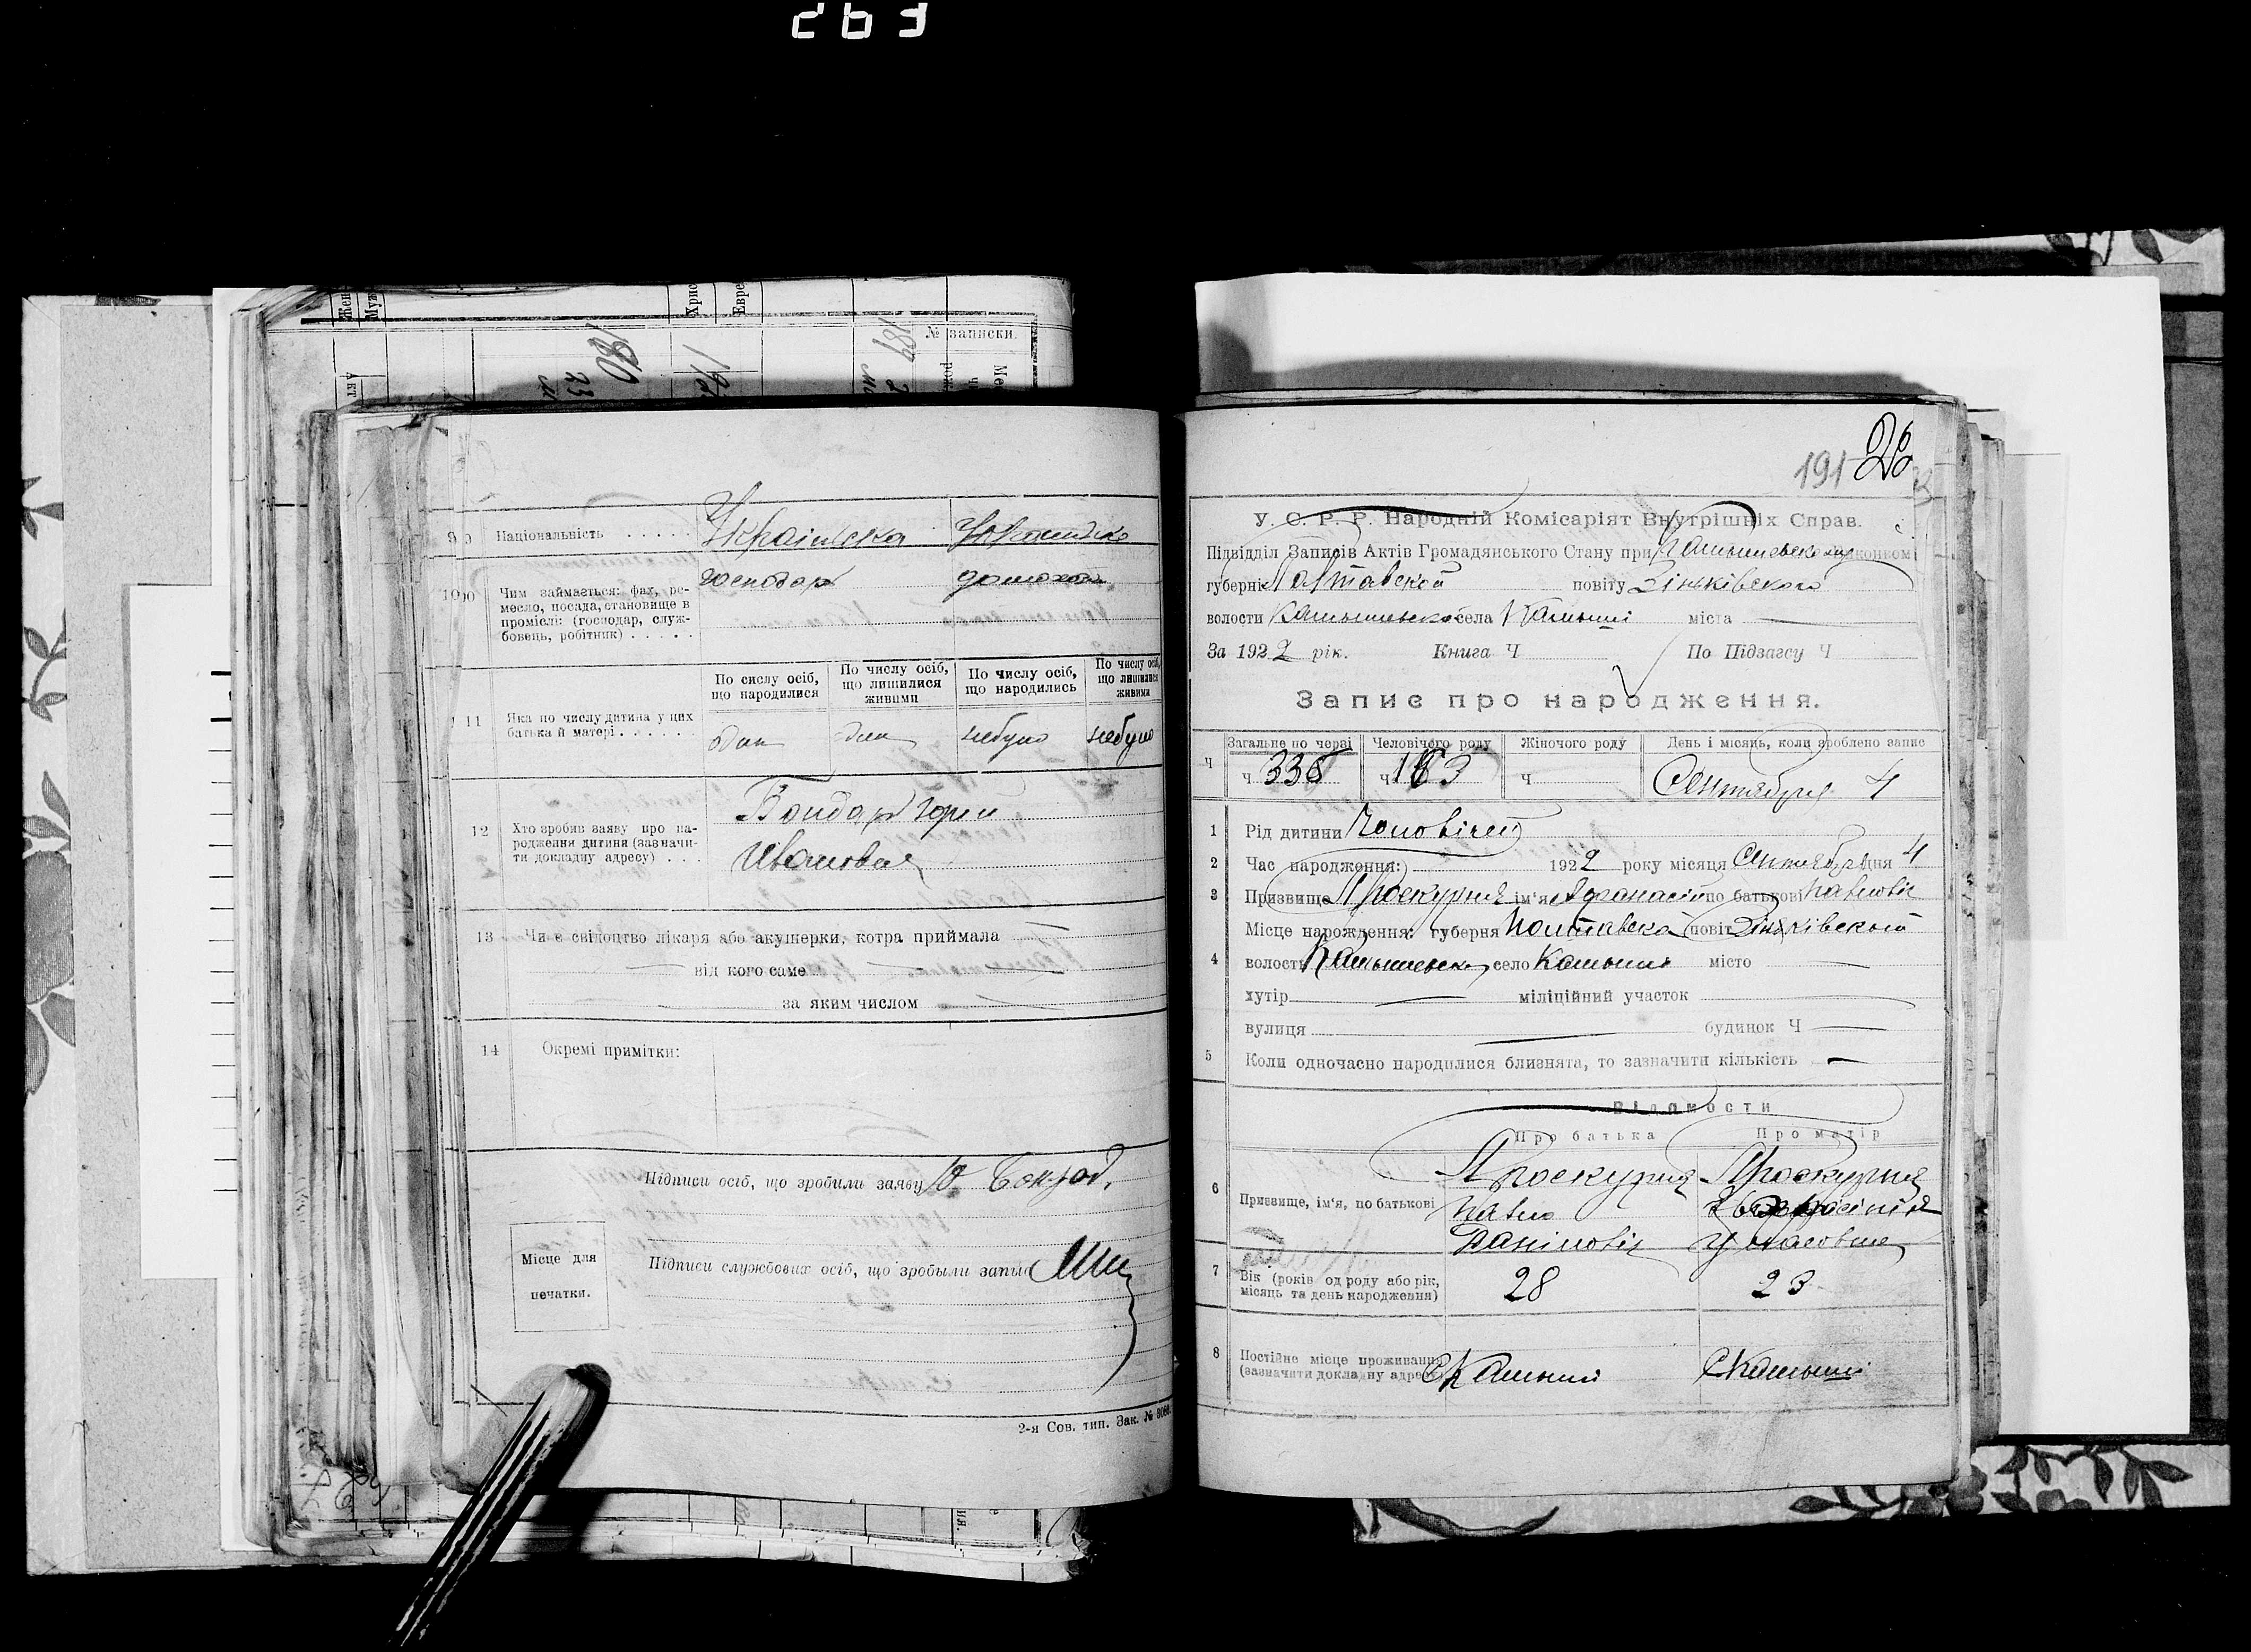 263
Жен
Муж
Хрис
Евре
180
189
№ записки.
9 Національність Українська Українська
10 Чим займається: фах, ре-
месло, посада, становище в
промислі: (господар, служ-
бовець, робітник) господар домохоз
По сислу осіб,
що народилися
По числу осіб,
що лишилися
живими
По числу осіб,
що народились
По числу осіб,
що лишилися
живими
11 Яка по числу дитина у цих
батька й матері один один небуло небуло
12 Хто зробив заяву про на-
родження дитини (зазначи-
ти докладну адресу) Бондар
Ивановая
13 Чи є свідоцтво лікаря або акушерки, котра приймала
від кого саме
за яким числом
14 Окремі примітки:
Підписи осіб, що зробили заяву
Місце для
печатки.
Підписи службових осіб, що зробыли запыс
2-я Сов. тип. Зак. №
191 26
У. С. Р. Р. Народній Комісаріят Внутрішніх Справ.
Підвідділ Записів Актів Громадянського Стану при
губернії Полтавской повіту Зіньківского
волости села Камыші міста
За 1922 рік. Книга Ч По Підзагсу Ч
Запис про народження.
Ч Загальне по черзі Человічого роду Жіночого роду День і місяць, коли зроблено запис
ч. 338 ч. 183 ч Сентября 4
1 Рід дитини Чоловічей
2 Час народження: 1922 року місяця Сентября дня 4
3 Призвище Проскурня ім'я Афанасій по батькові Павловіч
4 Місце нарождення: губерня Полтавска повіт Зіньківской
волость село Камыши місто
хутір міліційний участок
вулиця будинок Ч
5 Коли одночасно народилися близнята, то зазначити кількість
Відомости
Про батька Про матір
6 Призвище, ім'я, по батькові Проскурня Проскурня
Павло
Данілович
7 Вік (років од роду або рік,
місяць та день народження) 28 23
8 Постійне місце проживання
(зазначити докладну адресу) С Камыші С Камыші